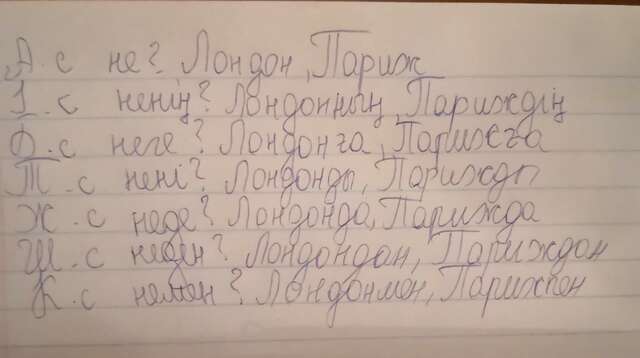 А.с не? Лондон, Париж
І.с ненің? Лондонның, Париждің
Б.с неге? Лондонға, Парижға
Т.с нені? Лондонды, Парижды
Ж.с неде? Лондонда, Парижда
Ш.с неден? Лондондан, Париждан
К.с немен? Лондонмен, Парижпен